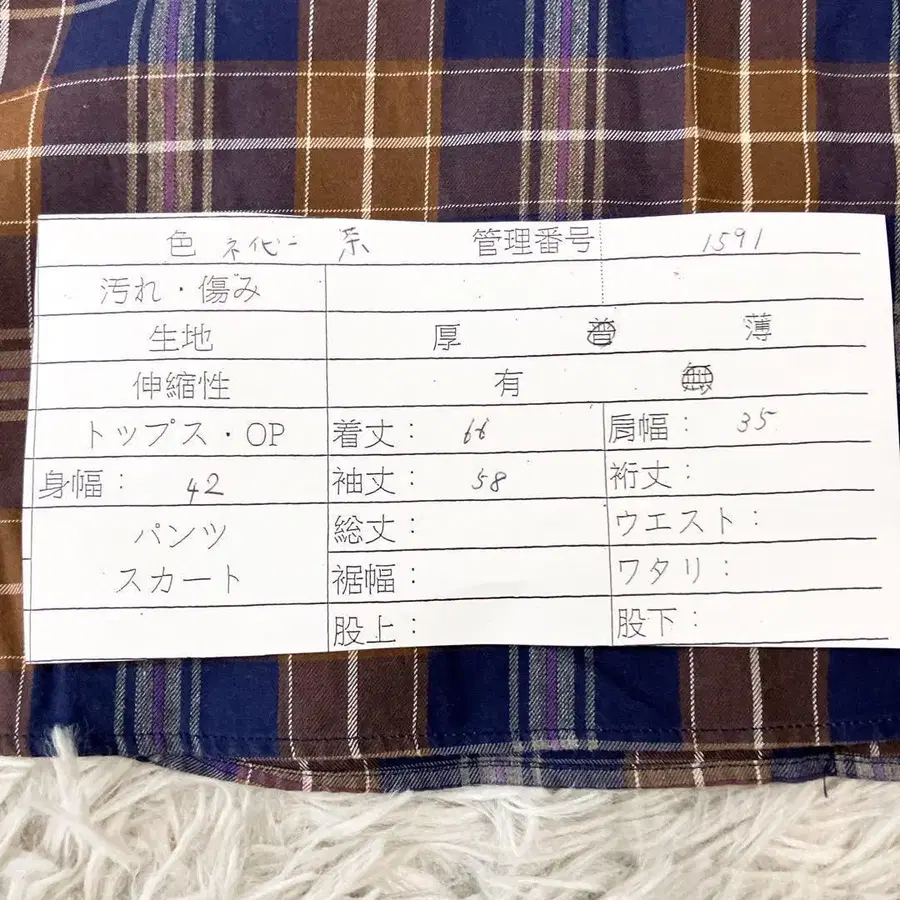 色 ネイビー 系 管理番号 1591
汚れ・傷み
生地 厚 普 薄
伸縮性 有 無
トップス・OP 着丈: 66 肩幅: 35
身幅: 42 袖丈: 58 裄丈:
パンツ 総丈: ウエスト:
スカート 裾幅: ワタリ:
股上: 股下: